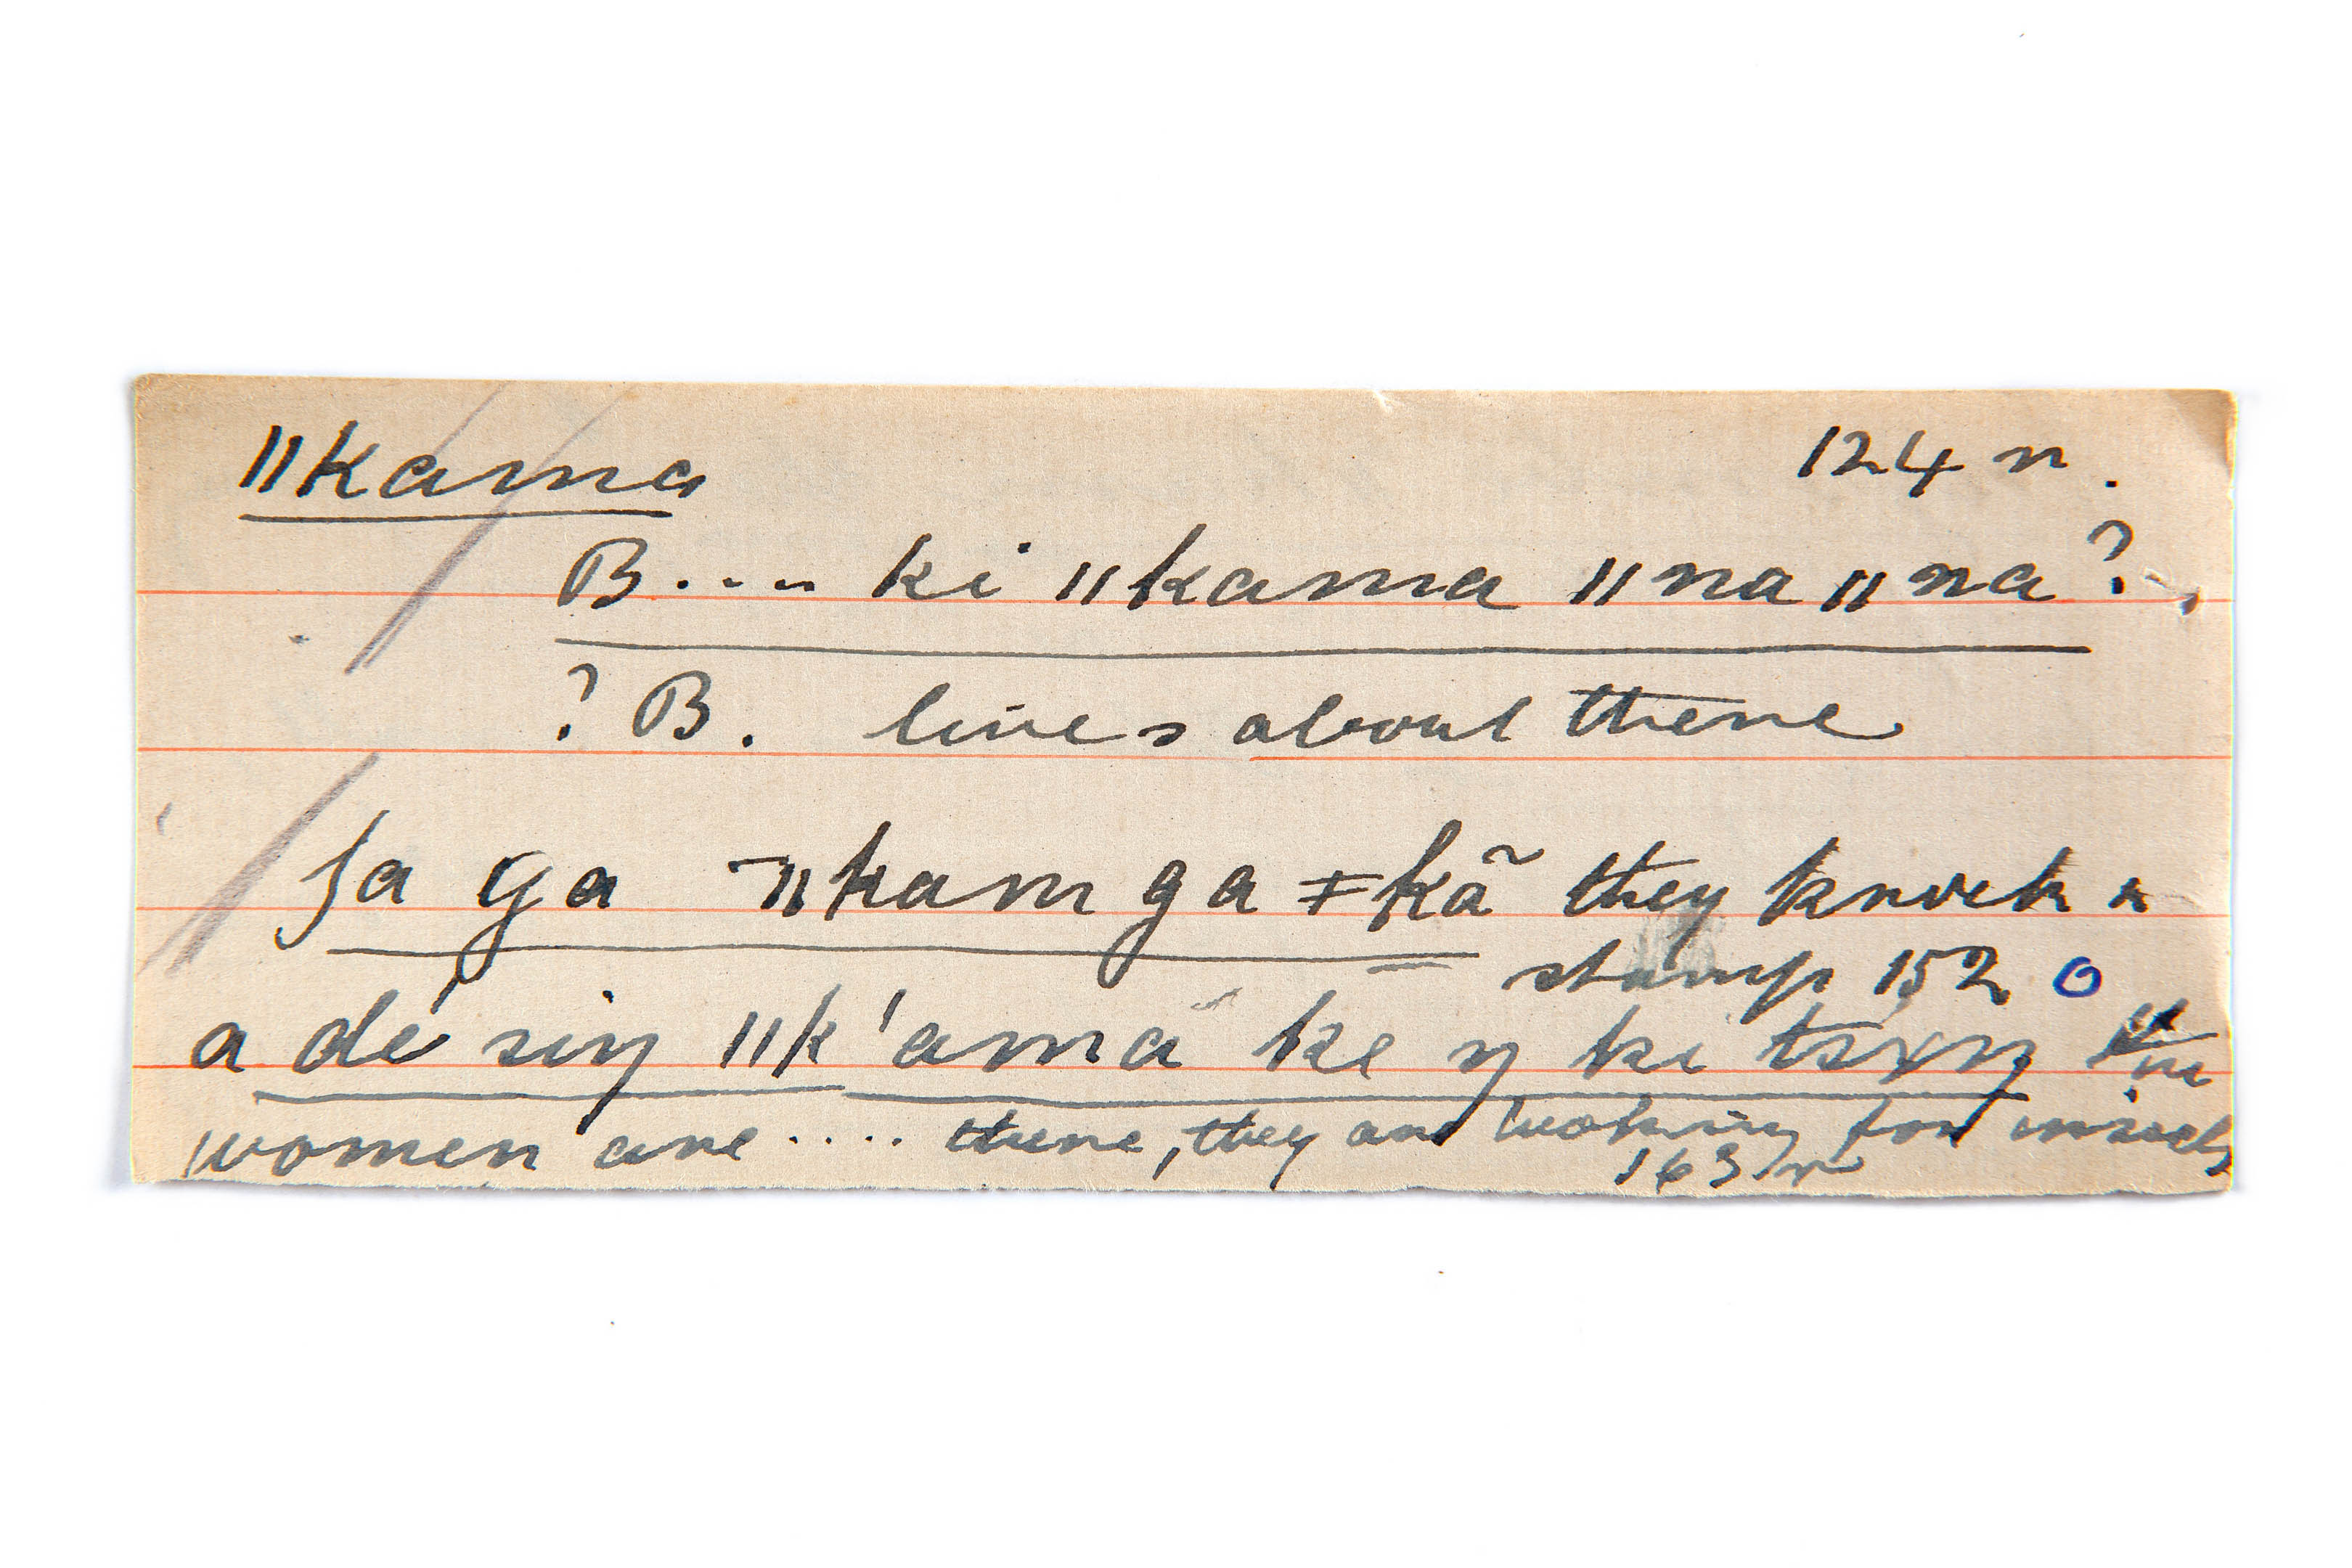 ǁkama 124 r.
B.... ki ǁkama ǁna ǁna?
? B. lives about there
ʃa ga ¬ǁkam ga ǂkã they knock &
stamp 152 0
a dé siŋ ǁk'ama ke ŋ ki tsxŋ the
women are .... there, they are looking for insects
163 r